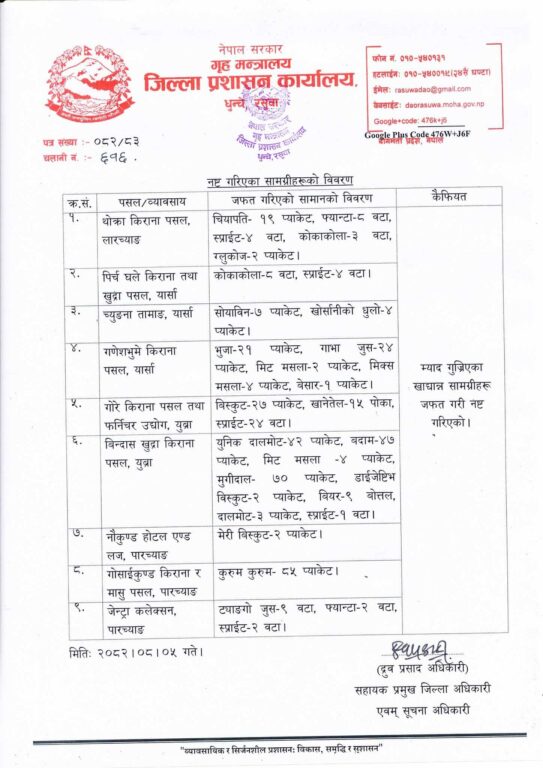 नेपाल सरकार
गृह मन्त्रालय
जिल्ला प्रशासन कार्यालय,
धुन्चे, रसुवा
फोन नं. ०१०-५४०१३१
हटलाईनः ०१०-५४००१५(२४सै घण्टा)
ईमेलः rasuwadao@gmail.com
वेबसाईटः daorasuwa.moha.gov.np
Google+code: 476k+j6
Google Plus Code 476W+J6F
बागमती प्रदेश, नेपाल
नेपाल सरकार
गृह मन्त्रालय
जिल्ला प्रशासन कार्यालय
धुन्चे, रसुवा
पत्र सख्या :- ०८२/८३
चलानी नं. :- ६१६.
नष्ट गरिएका सामग्रीहरूको विवरण
क्र.सं. पसल/व्यावसाय जफत गरिएको सामानको विवरण कैफियत
१. थोक्रा किराना पसल, चियापति- १९ प्याकेट, फ्यान्टा-८ वटा,
लारच्याङ स्प्राईट-४ वटा, कोकाकोला-३ वटा,
ग्लुकोज-२ प्याकेट।
२. पिर्च घले किराना तथा कोकाकोला-८ वटा, स्प्राईट-४ वटा।
खुद्रा पसल, यार्सा
३. च्युडना तामाङ, यार्सा सोयाबिन-७ प्याकेट, खोर्सानीको धुलो-४
प्याकेट।
४. गणेशभुमे किराना भुजा-२१ प्याकेट, गाभा जुस-२४
पसल, यार्सा प्याकेट, मिट मसला-२ प्याकेट, मिक्स
मसला-४ प्याकेट, बेसार-१ प्याकेट।
म्याद गुज्रिएका
खाद्यान्न सामग्रीहरू
जफत गरी नष्ट
गरिएको।
५. गोरे किराना पसल तथा बिस्कुट-२७ प्याकेट, खानेतेल-१५ पोका,
फर्निचर उद्योग, युब्रा स्प्राईट-२४ वटा।
६. बिन्दास खुद्रा किराना युनिक दालमोट-४२ प्याकेट, बदाम-४७
पसल, युब्रा प्याकेट, मिट मसला -४ प्याकेट,
मुगीदाल- ७० प्याकेट, डाईजेष्टिभ
बिस्कुट-२ प्याकेट, बियर-९ बोत्तल,
दालमोट-३ प्याकेट, स्प्राईट-१ वटा।
७. नौकुण्ड होटल एण्ड मेरी बिस्कुट-२ प्याकेट।
लज, पारच्याङ
८. गोसाईकुण्ड किराना र कुरुम कुरुम- ८५ प्याकेट।
मासु पसल, पारच्याङ
९. जेन्ट्रा कलेक्सन, ट्याङगो जुस-९ वटा, फ्यान्टा-२ वटा,
पारच्याङ स्प्राईट-२ वटा।
मितिः २०८२।०८।०५ गते।
(द्रुव प्रसाद अधिकारी)
सहायक प्रमुख जिल्ला अधिकारी
एवम् सूचना अधिकारी
"व्यावसायिक र सिर्जनशील प्रशासनः विकास, समृद्धि र सुशासन"